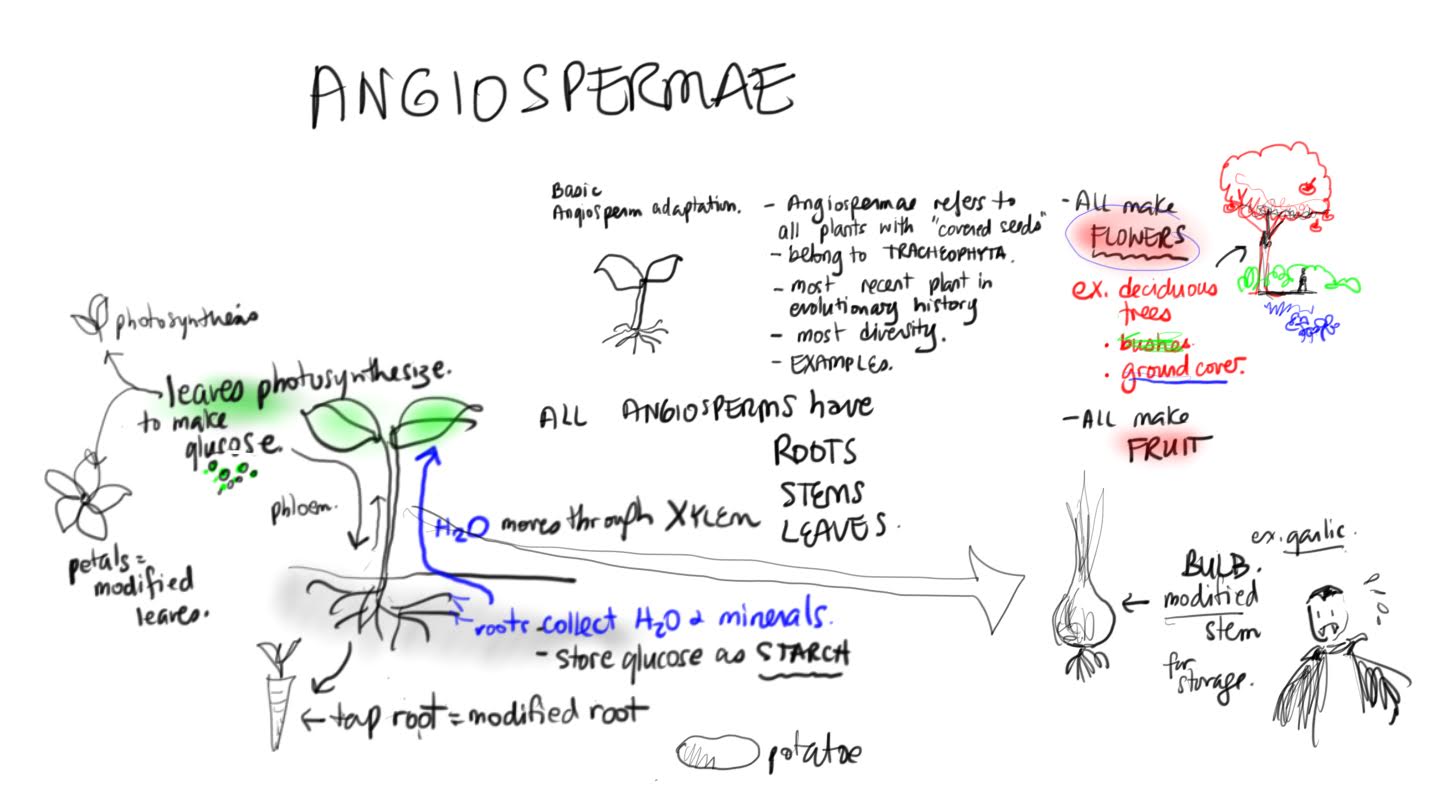 ANGIOSPERMAE
Basic
Angiosperm adaptation.
- Angiospermae refers to
all plants with "covered seeds"
- belong to TRACHEOPHYTA.
- most recent plant in
evolutionary history
- most diversity.
- EXAMPLES.
- ALL make
FLOWERS
ex. deciduous
trees
• bushes
• ground cover.
- ALL make
FRUIT
photosynthesis
leaves photosynthesize.
to make
glucose.
phloem.
petals =
modified
leaves.
ALL ANGIOSPERMS have
ROOTS
STEMS
LEAVES.
H2O moves through XYLEM
roots - collect H2O & minerals.
- store glucose as STARCH
← tap root = modified root
potatoe
ex. garlic.
BULB.
← modified
stem
for
storage.